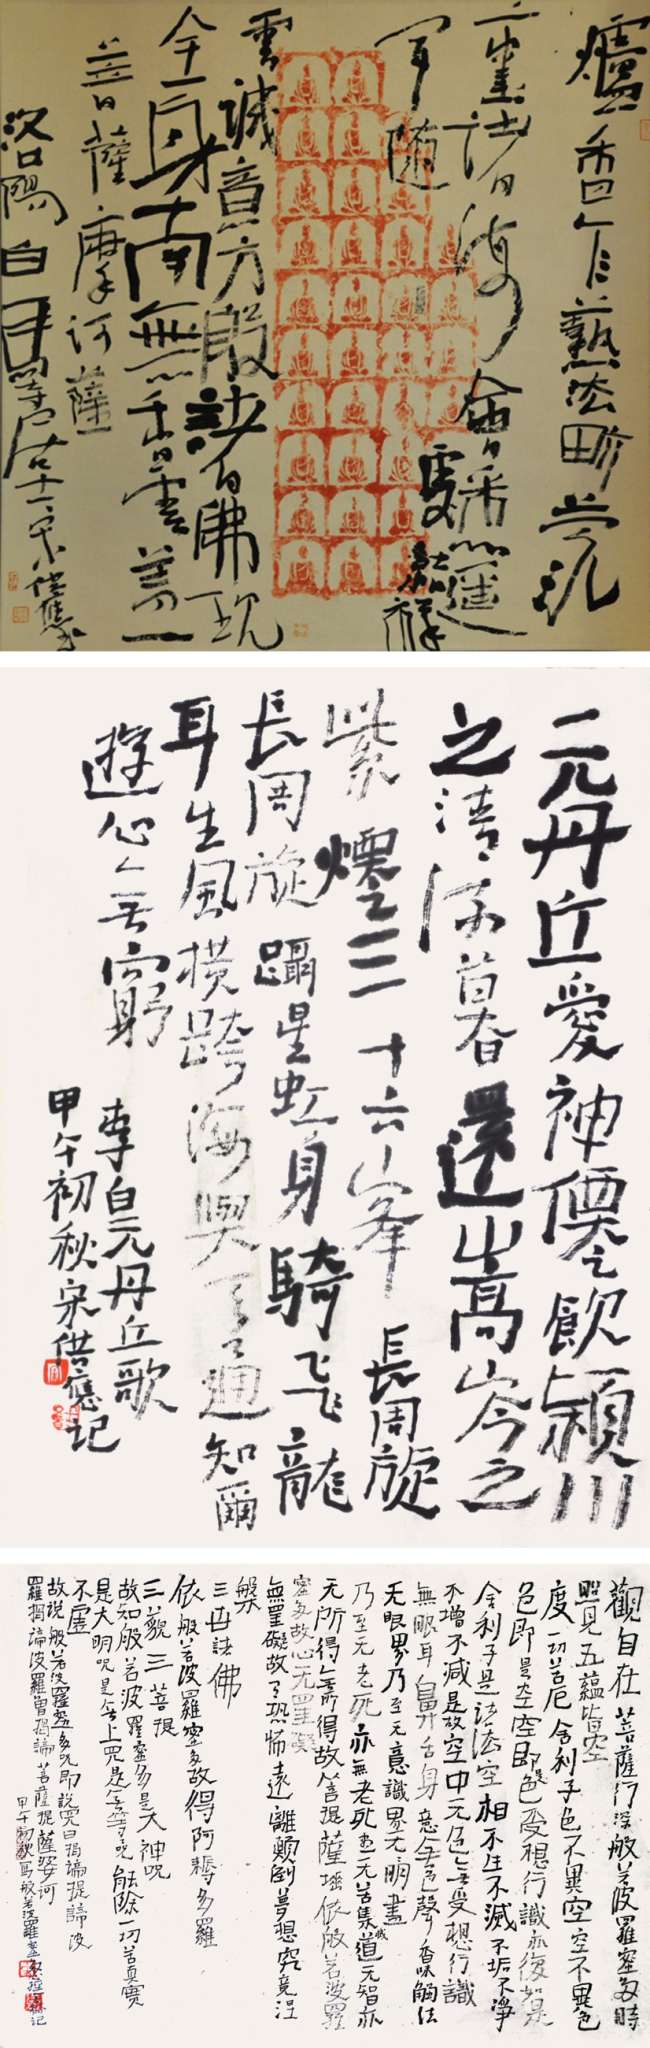 爐香乍爇法界蒙熏
諸佛海會悉遙聞
隨處結祥雲
誠意方殷諸佛現
全身南無香雲蓋
菩薩摩訶薩
洛陽白馬寺居士宋
元丹丘愛神僊飲潁川
之清流暮還嵩岑之
紫煙三十六峯長周旋
長周旋躡星虹身騎飛龍
耳生風橫跨海與天通知爾
遊心無窮
李白元丹丘歌
甲午初秋宋世應記
觀自在菩薩行深般若波羅蜜多時
照見五蘊皆空
度一切苦厄舍利子色不異空空不異色
色即是空空即是色受想行識亦復如是
舍利子是諸法空相不生不滅不垢不淨
不增不減是故空中无色无受想行識
無眼耳鼻舌身意無色聲香味觸法
无眼界乃至无意識界无無明盡
乃至无老死亦無老死盡无苦集滅道无智亦
无所得無所得故菩提薩埵依般若波羅
蜜多故心无罣礙
無罣礙故无恐怖遠離顛倒夢想究竟涅
槃
三世諸佛
依般若波羅蜜多故得阿耨多羅
三藐三菩提
故知般若波羅蜜多是大神呪
是大明呪是無上呪是無等呪能除一切苦真實
不虛
故說般若波羅蜜多呪即說呪曰揭諦揭諦波
羅揭諦波羅僧揭諦菩薩提薩婆訶
甲午初秋寫般若波羅蜜